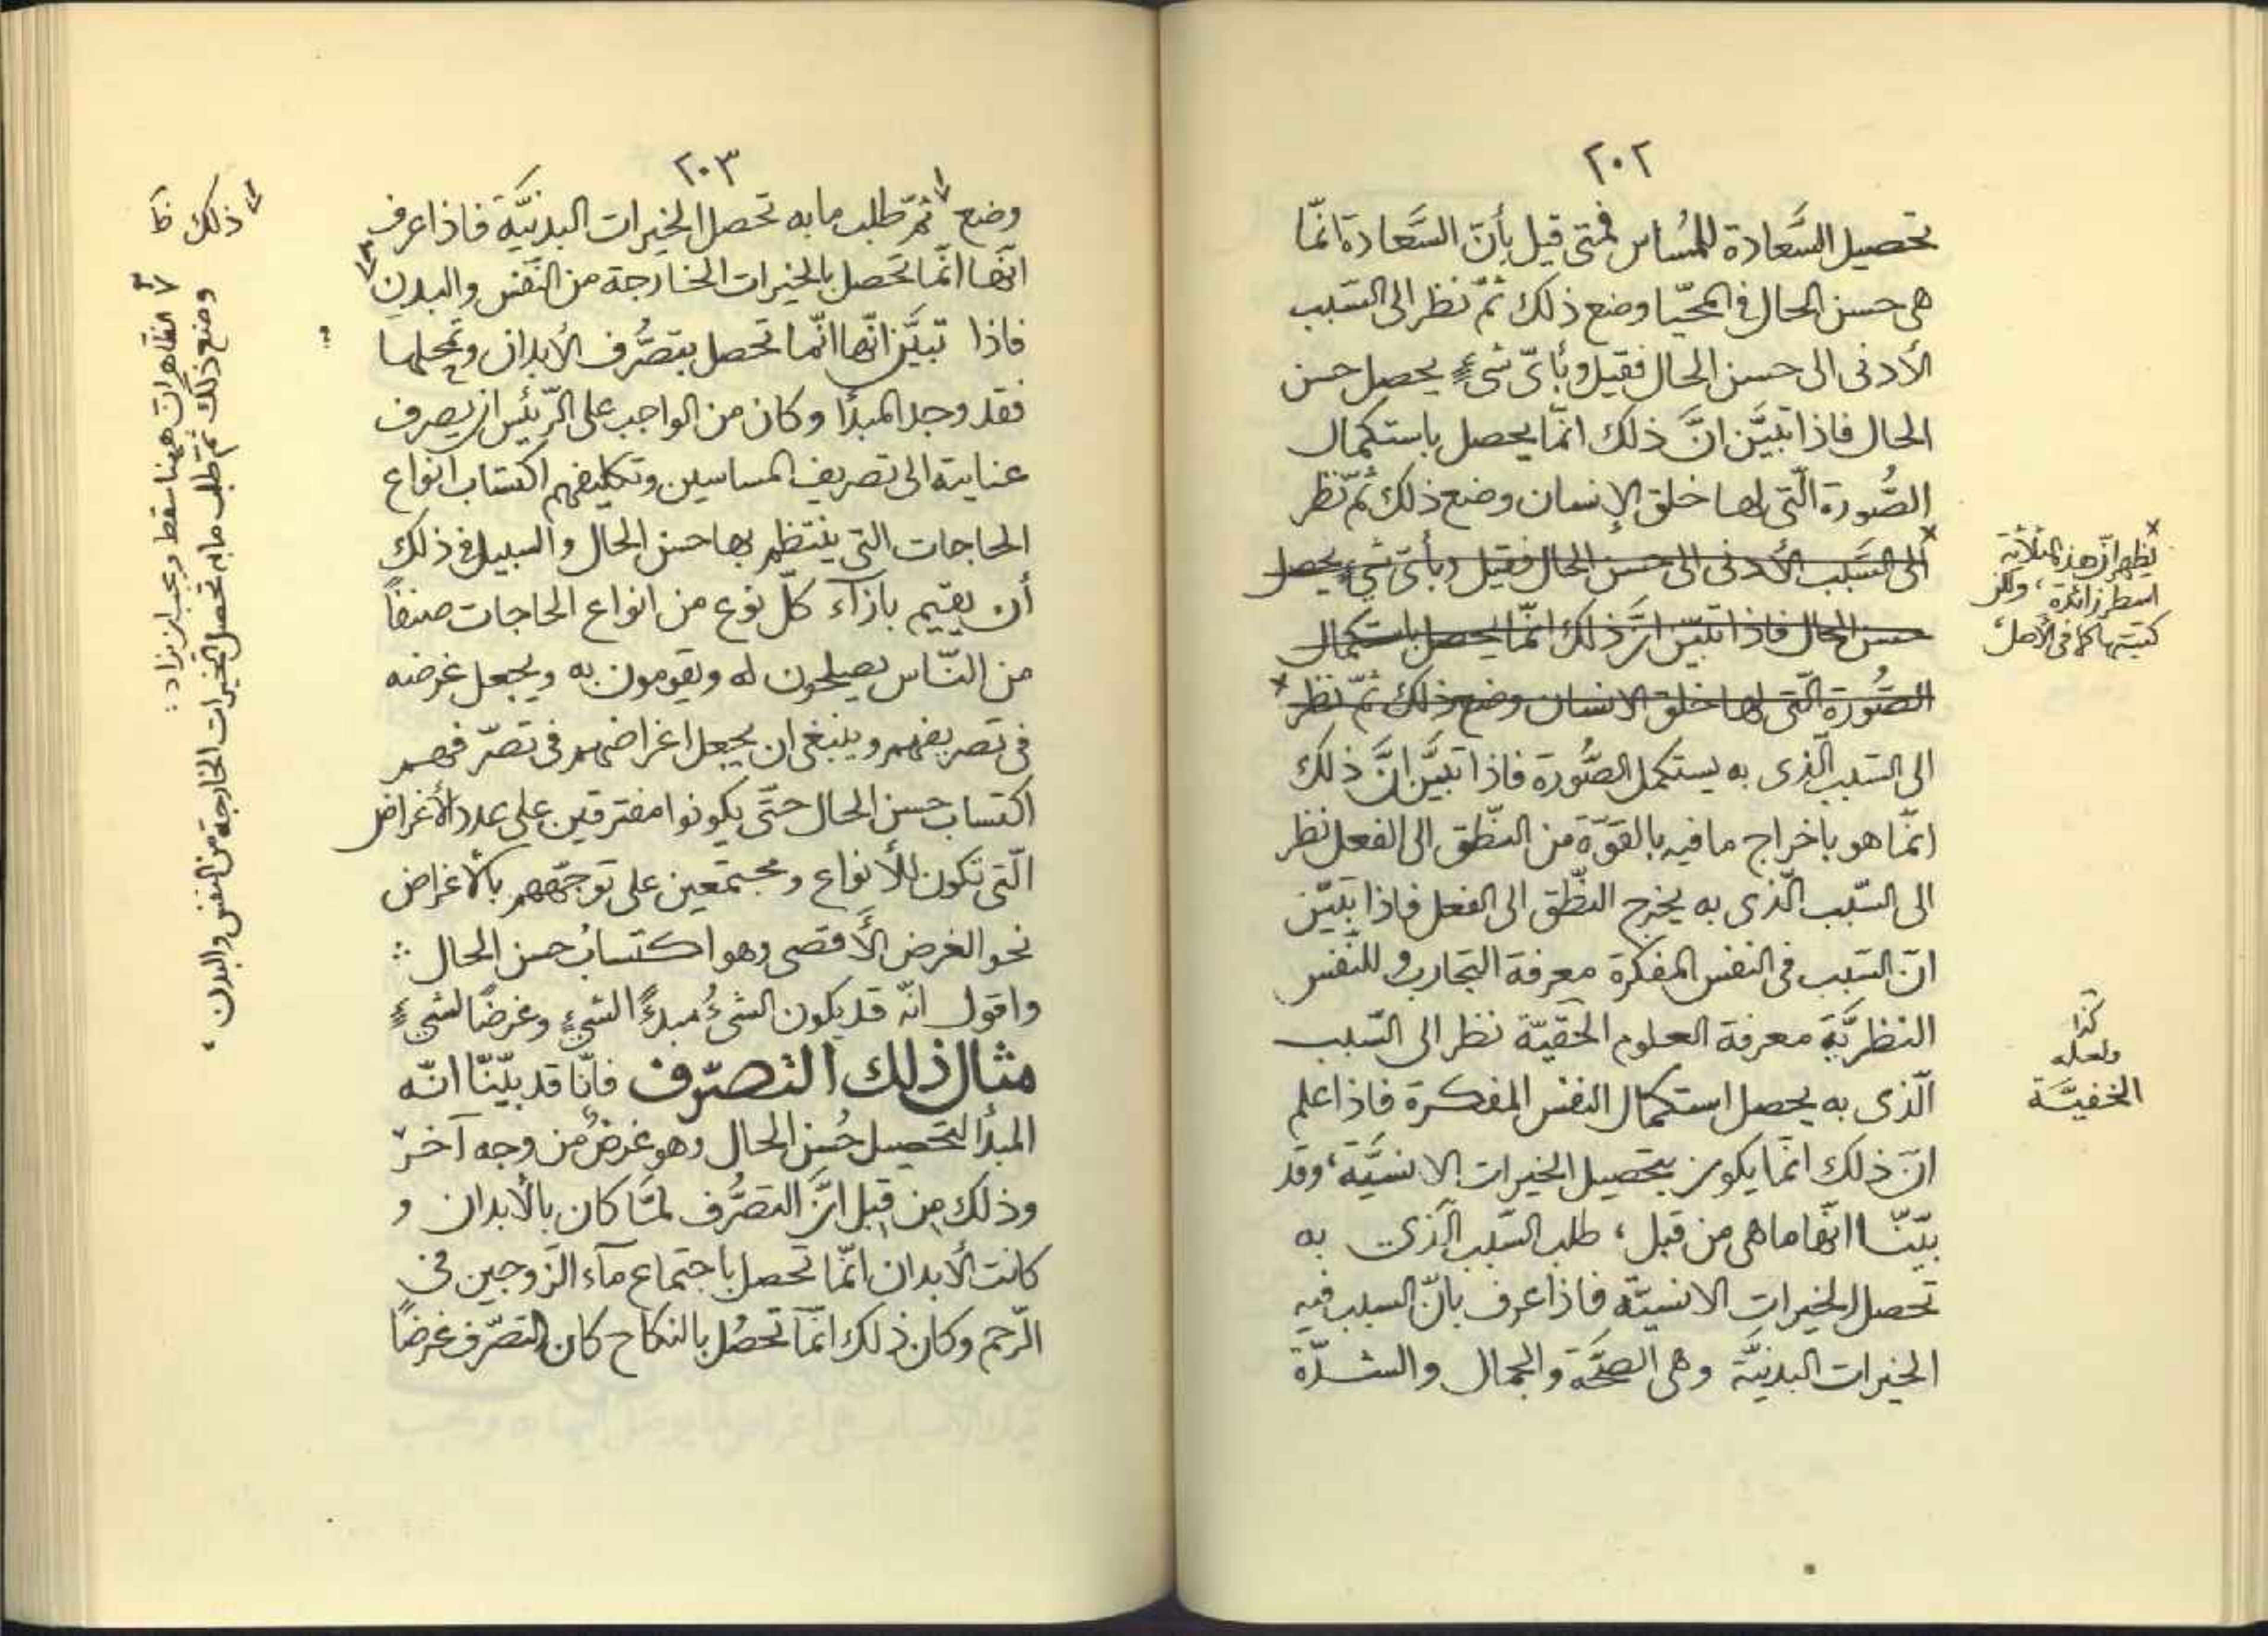 ٢٠٢
تحصيل السَّعادة للمُساس فمتى قيل بأنّ السَّعادة انّما
هى حسن الحال فى المحيّا وضع ذلك ثمّ نظر الى السّبب
الأدنى الى حسن الحال فقيل وبأىّ شىءٍ يحصل حسن
الحال فاذا تبيَّن انَّ ذلك انّما يحصل باستكمال
الصُّورة الّتى لها خلق الإنسان وضع ذلك ثمّ نظر
الى السَّبب الأدنى الى حسن الحال فقيل وبأىّ شىءٍ يحصل
حسن الحال فاذا تبيّن انَّ ذلك انّما يحصل باستكمال
الصُّورة الّتى لها خلق الانسان وضع ذلك ثمّ نظر
الى السّبب الّذى به يستكمل الصُّورة فاذا تبيَّن انَّ ذلك
انّما هو باخراج ما فيه بالقوّة من النّطق الى الفعل نظر
الى السّبب الّذى به يخرج النّطق الى الفعل فاذا تبيّن
انّ السّبب فى النفس المفكرة معرفة التجارب و للنّفس
النظريَّة معرفة العلوم الحقيّة نظر الى السّبب
الّذى به يحصل استكمال النفس المفكرة فاذا علم
انّ ذلك انّما يكون بتحصيل الخيرات الانسيَّة، وقد
بيّنّا انّها ما هى من قبل، طلب السّبب الّذى به
تحصل الخيرات الانسيّة فاذا عرف بانّ السبب فيه
الخيرات البدنيَّة وهى الصحَّة والجمال والشدّة
× يظهر انّ هذه الثلاثة
اسطر زائدة، ولكن
كتبتها كما فى الأصل،
كذا
ولعله
الخفيَّة
٢٠٣
وضع ثمّ طلب ما به تحصل الخيرات البدنيَّة فاذا عرف
انّها انّما تحصل بالخيرات الخارجة من النّفس والبدن
فاذا تبيَّن انّها انّما تحصل بتصرُّف الأبدان وتمحلها
فقد وجد المبدأ وكان من الواجب على الرّئيس ان يصرف
عنايته الى تصريف المساسين وتكليفهم اكتساب انواع
الحاجات التى ينتظم بها حسن الحال والسبيل فى ذلك
أن يقيم بازآء كلّ نوع من انواع الحاجات صنفاً
من النّاس يصلحون له ويقومون به ويجعل غرضه
فى تصريفهم وينبغى ان يجعل اغراضهم فى تصرّفهم
اكتساب حسن الحال حتّى يكونوا مفترقين على عدد الأغراض
الّتى تكون للأنواع ومجتمعين على توجّههم بالأغراض
نحو الغرض الأَقصى وهو اكتسابُ حسن الحال ∴
واقول انّه قد يكون الشىءُ مبدءً الشىءٍ وغرضًا لشىءٍ
مثال ذلك التصرّف فانّا قد بيّنّا انّه
المبدأ لتحصيل حُسن الحال وهو غرضٌ من وجه آخر
وذلك من قبل انَّ التصرُّف لمّا كان بالأبدان و
كانت الأبدان انّما تحصل باجتماع مآء الزّوجين فى
الرّحم وكان ذلك انّما تحصُل بالنكاح كان التصرّف غرضاً
ذلك
الظاهر انّ ههنا سقط ويجب ان يزاد:
وضع ذلك ثم طلب ما به تحصل الخيرات الخارجة من النفس والبدن،